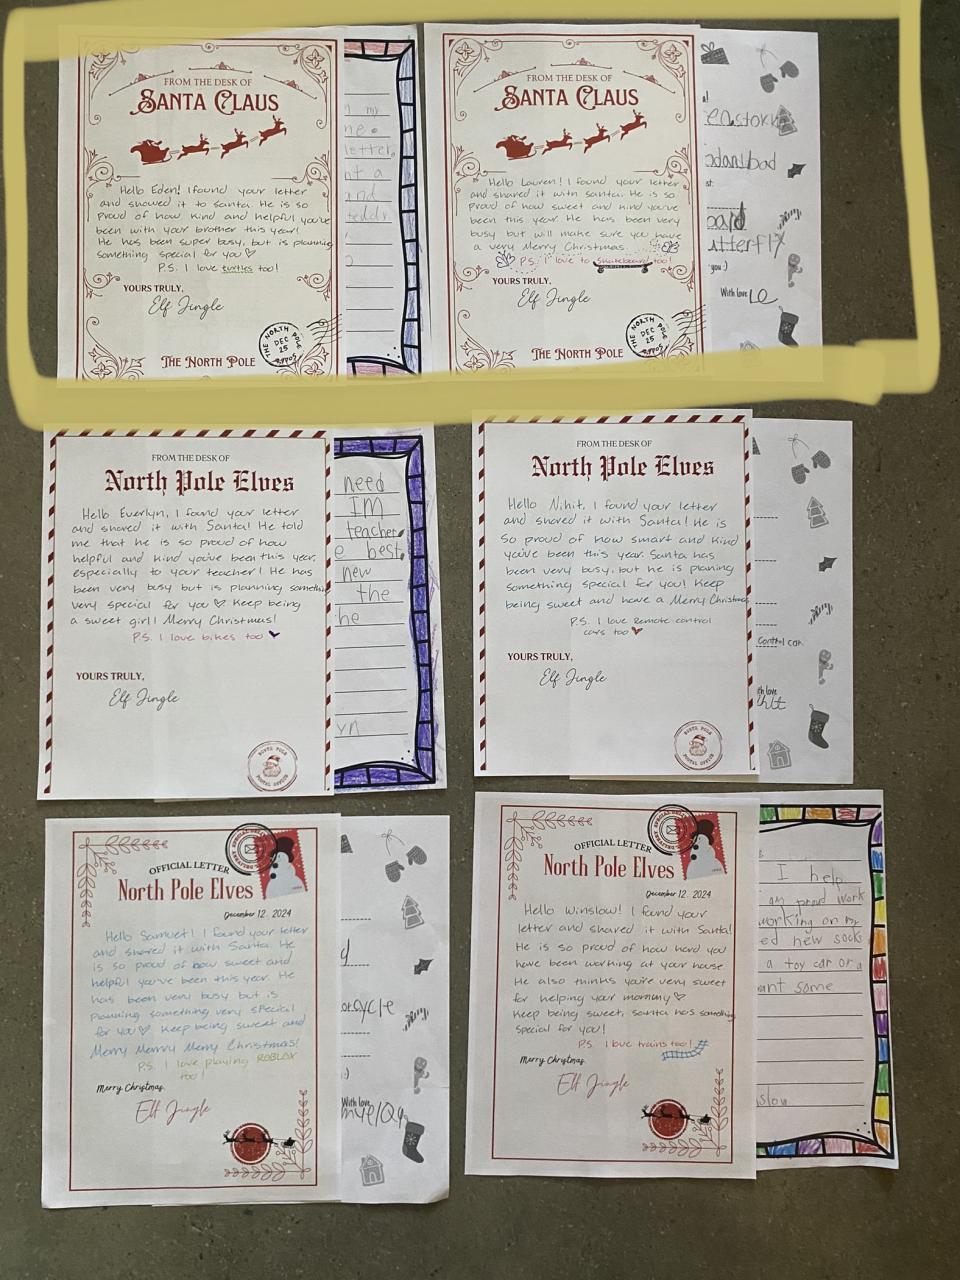 FROM THE DESK OF
SANTA CLAUS
Hello Eden! I found your letter
and showed it to santa. He is so
proud of how kind and helpful you've
been with your brother this year!
He has been super busy, but is planning
something special for you
P.S. I love turtles too!
YOURS TRULY,
Elf Jingle
THE NORTH POLE
DEC
25
THE NORTH POLE
my
me.
letter.
nt a
and
teddy
FROM THE DESK OF
SANTA CLAUS
Hello Lauren! I found your letter
and shared it with santa. He is so
proud of how sweet and kind you've
been this year. He has been very
busy but will make sure you have
a very Merry Christmas.
P.S. I love to skateboard too!
YOURS TRULY,
Elf Jingle
THE NORTH POLE
DEC
25
THE NORTH POLE
you :)
With love
Le
FROM THE DESK OF
North Pole Elves
Hello Everlyn, I found your letter
and shared it with Santa! He told
me that he is so proud of how
helpful and kind you've been this year,
especially to your teacher! He has
been very busy but is planning something
very special for you Keep being
a sweet girl! Merry Christmas!
P.S. I love bikes too
YOURS TRULY,
Elf Jingle
NORTH POLE
POSTAL OFFICE
need
IM
teacher.
e best.
new
the
he
yn
FROM THE DESK OF
North Pole Elves
Hello Nihit, I found your letter
and shared it with Santa! He is
so proud of how smart and kind
you've been this year. Santa has
been very busy, but he is planing
something special for you! Keep
being sweet and have a Merry Christmas
P.S. I love Remote control
cars too
YOURS TRULY,
Elf Jingle
NORTH POLE
POSTAL OFFICE
control car.
th love
hit
OFFICIAL LETTER
North Pole Elves
December 12, 2024
Hello Samuel! I found your letter
and shared it with Santa. He
is so proud of how sweet and
helpful you've been this year. He
has been very busy but is
planning something very special
for you Keep being sweet and
Merry Merry Merry Christmas!
P.S. I love playing ROBLOX
too!
Merry Christmas,
Elf Jingle
:)
With love
OFFICIAL LETTER
North Pole Elves
December 12, 2024
Hello Winslow! I found your
letter and shared it with Santa!
He is so proud of how hard you
have been working at your house.
He also thinks you're very sweet
for helping your mommy
Keep being sweet, santa has something
special for you!
P.S. I love trains too!
Merry Christmas,
Elf Jingle
I help
proud work
working on my
ed new socks
a toy car or a
ant some
slow